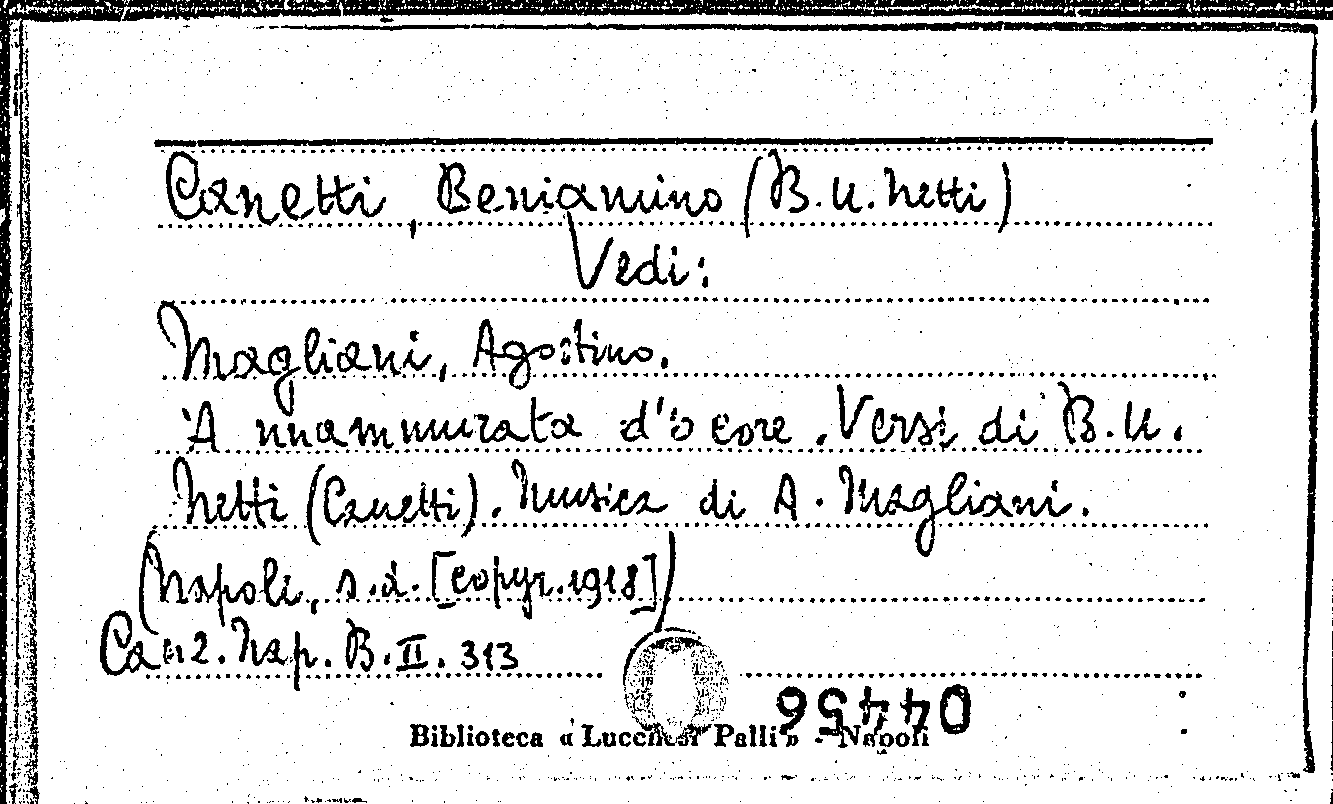 Canetti, Beniamino (B. U. Netti)
Vedi:
Magliani, Agostino.
'A nnammurata d' 'o core. Versi di B. U.
Netti (Canetti). Musica di A. Magliani.
(Napoli, s.d. [copyr. 1918])
Canz. Nap. B. II. 313
04456
Biblioteca « Lucchesi Palli » - Napoli